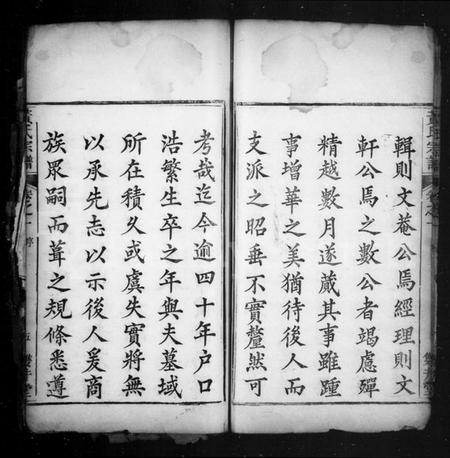 輯則文菴公焉經理則文
軒公焉之數公者竭慮殫
精越數月遂蕆其事雖踵
事增華之美猶待後人而
支派之昭垂不實釐然可
考哉迄今逾四十年户口
浩繁生卒之年與夫墓域
所在積久或虞失實將無
以承先志以示後人爰商
族眾嗣而葺之規條悉遵
黃氏宗譜
卷之一
序
五
雙井堂